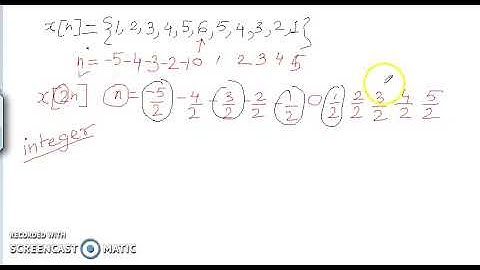 x[n] = {1, 2, 3, 4, 5, 6, 5, 4, 3, 2, 1}
↑
n = -5 -4 -3 -2 -1 0 1 2 3 4 5
x[2n] n = -5/2 -4/2 -3/2 -2/2 -1/2 0 1/2 2/2 3/2 4/2 5/2
integer
RECORDED WITH
SCREENCAST MATIC